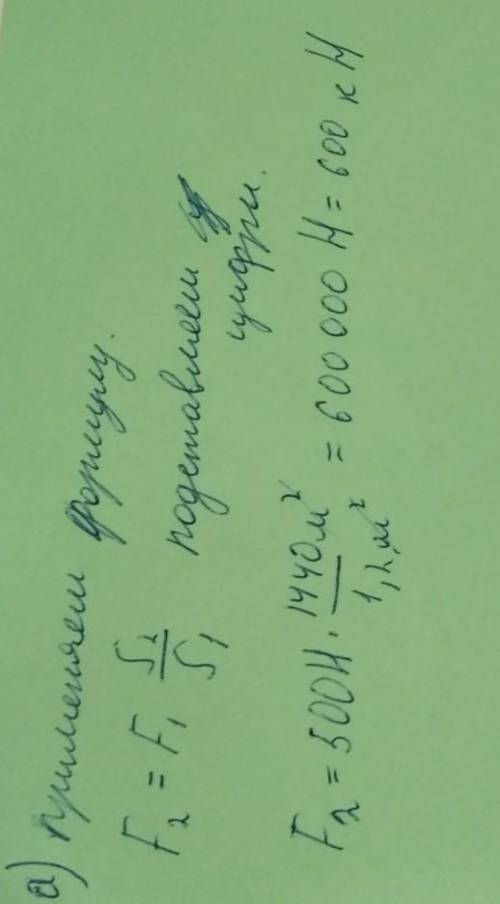 а) применяем формулу.
F₂ = F₁ S₂/S₁ подставляем
цифри.
F₂ = 500Н · 1440м²/1,2м² = 600 000 Н = 600 кН